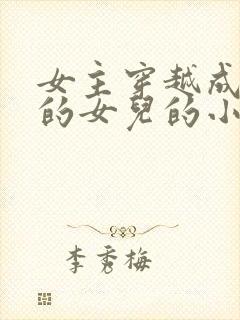 女主穿越成
的女兒的小
李秀梅